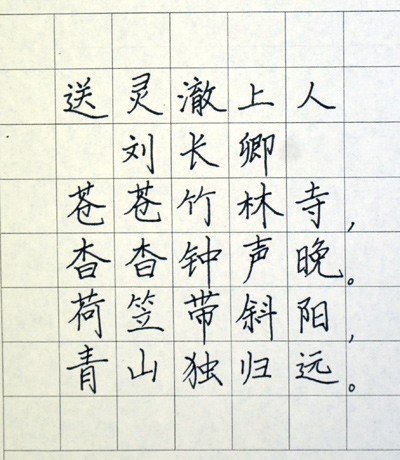 送灵澈上人
刘长卿
苍苍竹林寺，
杳杳钟声晚。
荷笠带斜阳，
青山独归远。